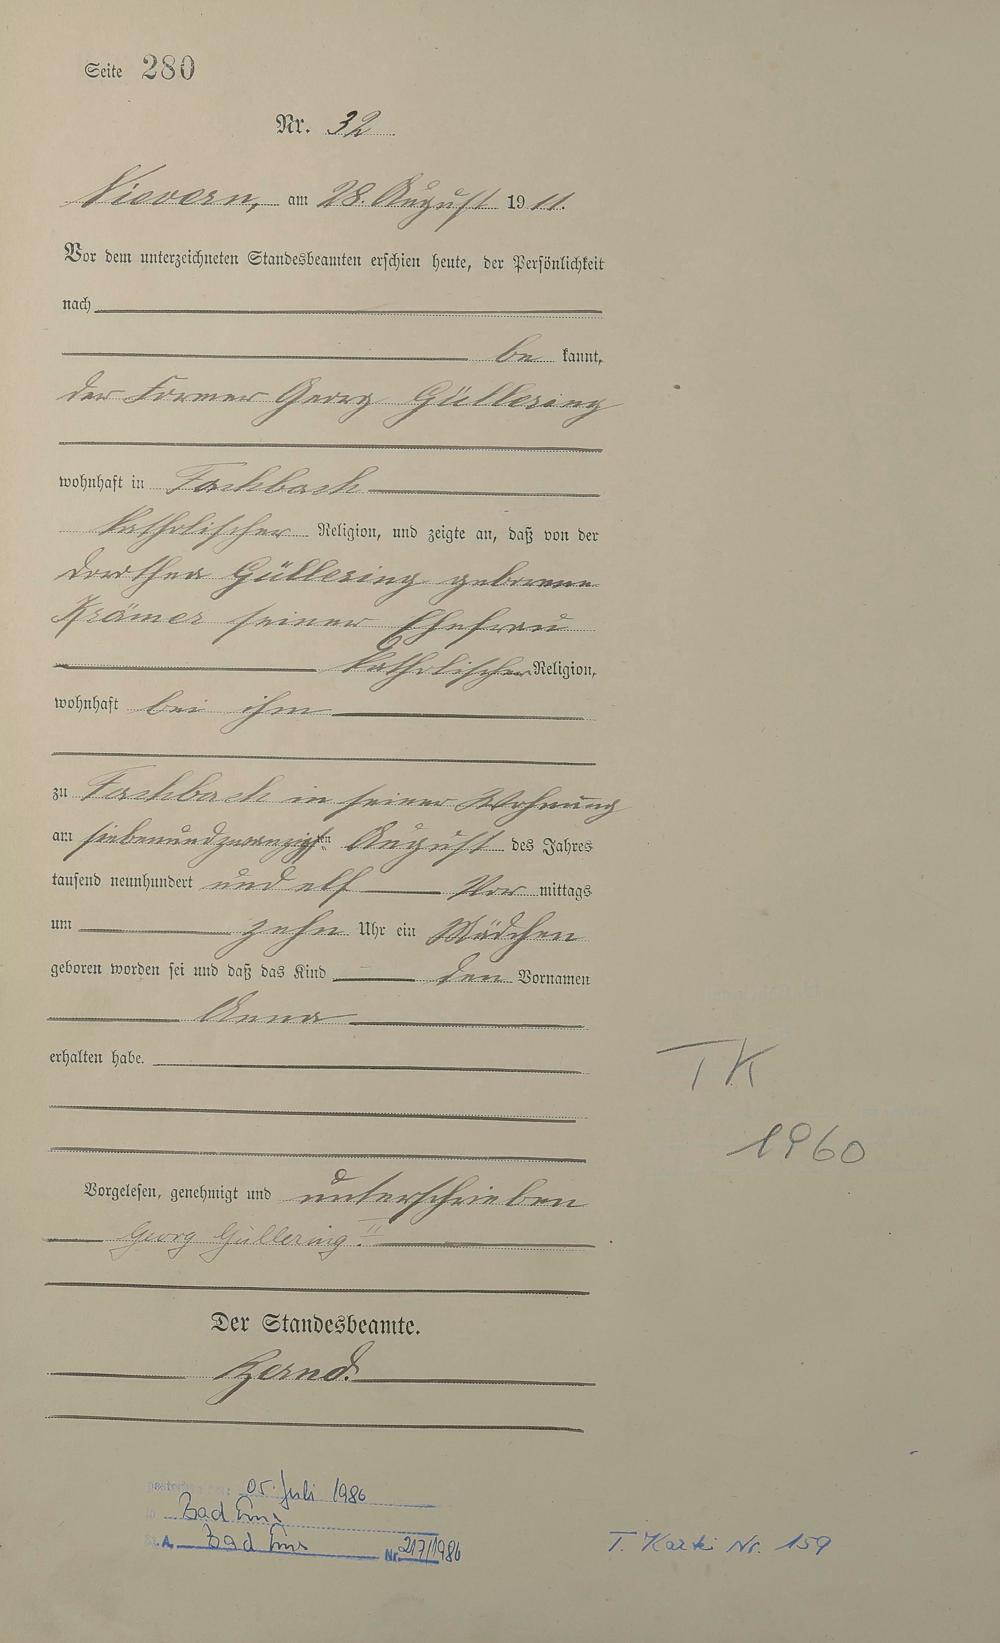 Seite 280
Nr. 32
Nievern, am 28. August 1911.
Vor dem unterzeichneten Standesbeamten erschien heute, der Persönlichkeit
nach
be kannt,
der Former Georg Güllering
wohnhaft in Fachbach
katholischer Religion, und zeigte an, daß von der
Dorothea Güllering geborene
Krämer seiner Ehefrau
katholischer Religion,
wohnhaft bei ihm
zu Fachbach in seiner Wohnung
am siebenundzwanzigsten August des Jahres
tausend neunhundert und elf Vor mittags
um zehn Uhr ein Mädchen
geboren worden sei und daß das Kind den Vornamen
Anna
erhalten habe.
TK
1960
Vorgelesen, genehmigt und unterschrieben
Georg Güllering II
Der Standesbeamte.
gestorben am: 05. Juli 1986
in Bad Ems
St.A. Bad Ems Nr. 217/1986
T. Kartei Nr. 159